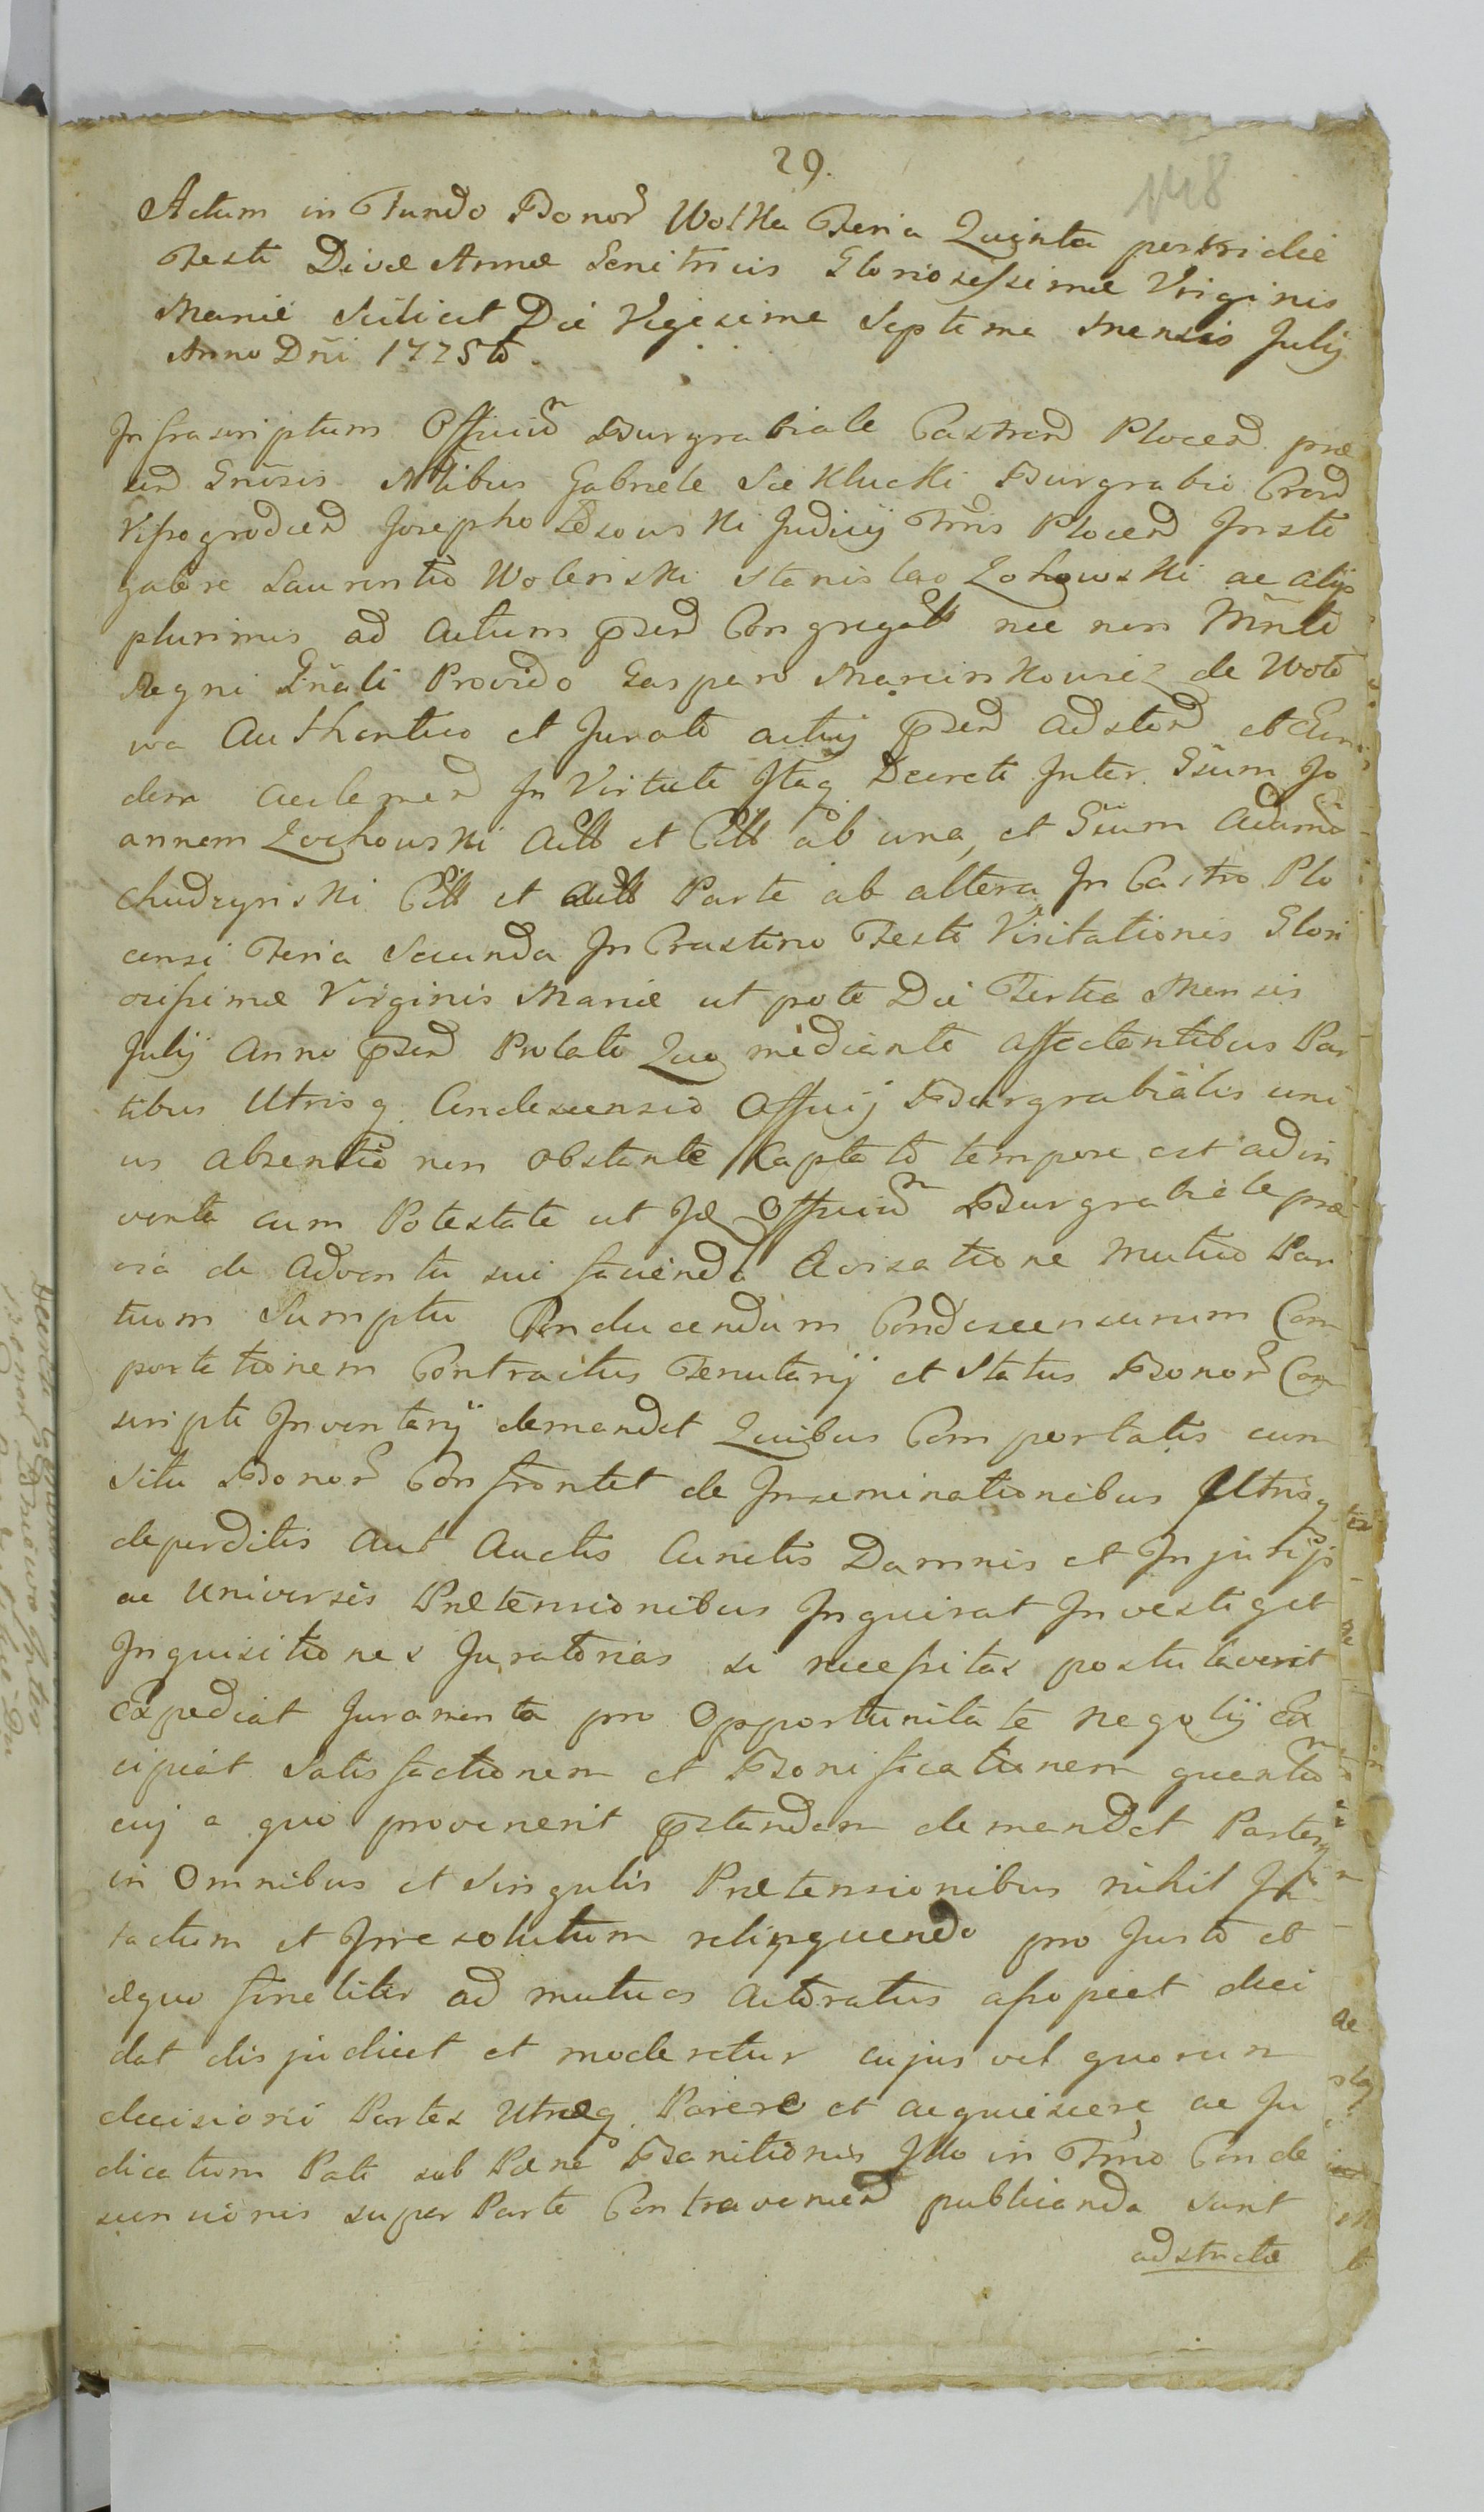 29.
148
Actum in Fundo Bonor Wolka Feria Quinta postridie
Festi Divæ Annæ Genitricis Gloriosissimæ Virginis
Mariæ Scilicet Die Vigesima Septima Mensis Julij
Anno Dñi 1775to.
Infrascriptum Officiũ Burgrabiale Castren Plocen præ
sen Gnsis Nlibus Gabriele Siekłucki Burgrabio Cren
Vissogroden Josepho Ossowski Judicij Trris Plocen Insti
gatore Laurentio Wolenski Stanislao Zochowski ac alijs
plurimis ad actum psen Congregatt nec non Mnrlo
Regni Gnali Provido Gaspero Marcinkowicz de Woło
wa Authentico et Jurato actuj psen adsten et Eun
dem acclamen In Virtute Itaq Decreti Inter Gsum Jo
annem Zochowski Actt et Citt ab una, et Gsum Adamũ
Chudzynski Citt et Actt Parte ab altera In Castro Plo
censi Feria Secunda In Crastino Festi Visitationis Glori
osissimæ Virginis Mariæ ut pote Die Tertia Mensis
Julij Anno psen Prolati Quo mediante affectantibus Par
tibus Utrisq Condescensio Officij Burgrabialis uni
us absentia non obstante Captato tempore est adin
venta cum Potestate ut Id Officiũ Burgrabiale præ
via de Adventu sui facienda Avisatione Mutuo Par
tium Sumptu Conducendum Condescensurum Com
portationem Contractus Tenutarij et Status Bonor Con
scripti Inventarij demandet Quibus Comportatis cum
Situ Bonor Confrontet de Inseminationibus Utrisq
deperditis Aut Auctis Cunctis Damnis et Injurijs
ac Universis Prætensionibus Inquirat Investiget
Inquisitiones Juratorias si necessitas postulaverit
Expediat Juramenta pro Opportunitate Negotij Ex
cipiat Satisfactionem et Bonificationem quantũ
cuj a quo provenerit pstandam demandet Partes
in Omnibus et Singulis Prætensionibus nihil In
tactum et Irresolutum relinquendo pro Justo et
æquo finaliter ad mutuos Actoratus assopiet deci
dat disjudicet et moderetur cujus vel quorum
decisioni Partes Utræq Parere et acquiescere ac Ju
dicatum Pati sub Pæna Banitionis Illo in Tmno Conde
scensionis super Parte Contravenien publicanda Sunt
adstrictæ